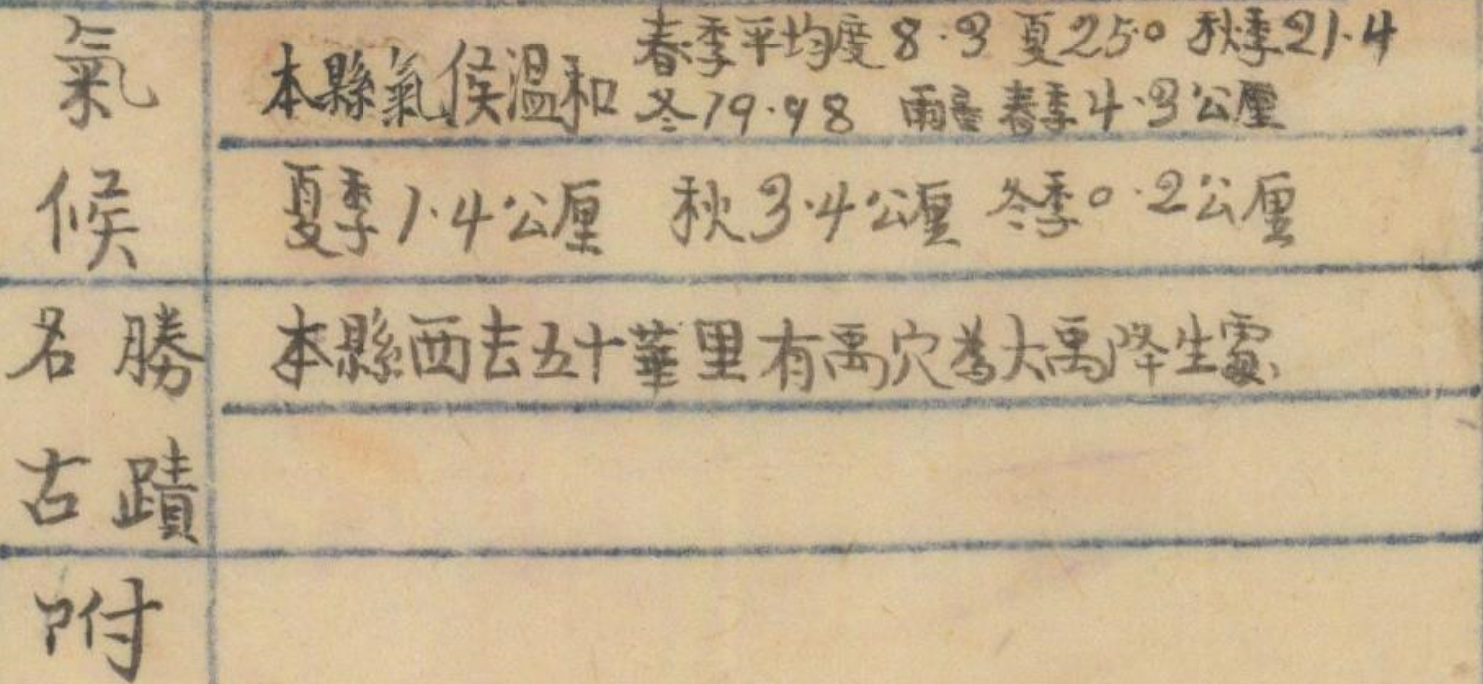 氣候
本縣氣候溫和 春季平均度8·3 夏25·0 秋季21·4
冬19·98 雨量 春季4·3公厘
夏季1·4公厘 秋3·4公厘 冬季0·2公厘
名勝古蹟
本縣西去五十華里有禹穴為大禹降生處
附